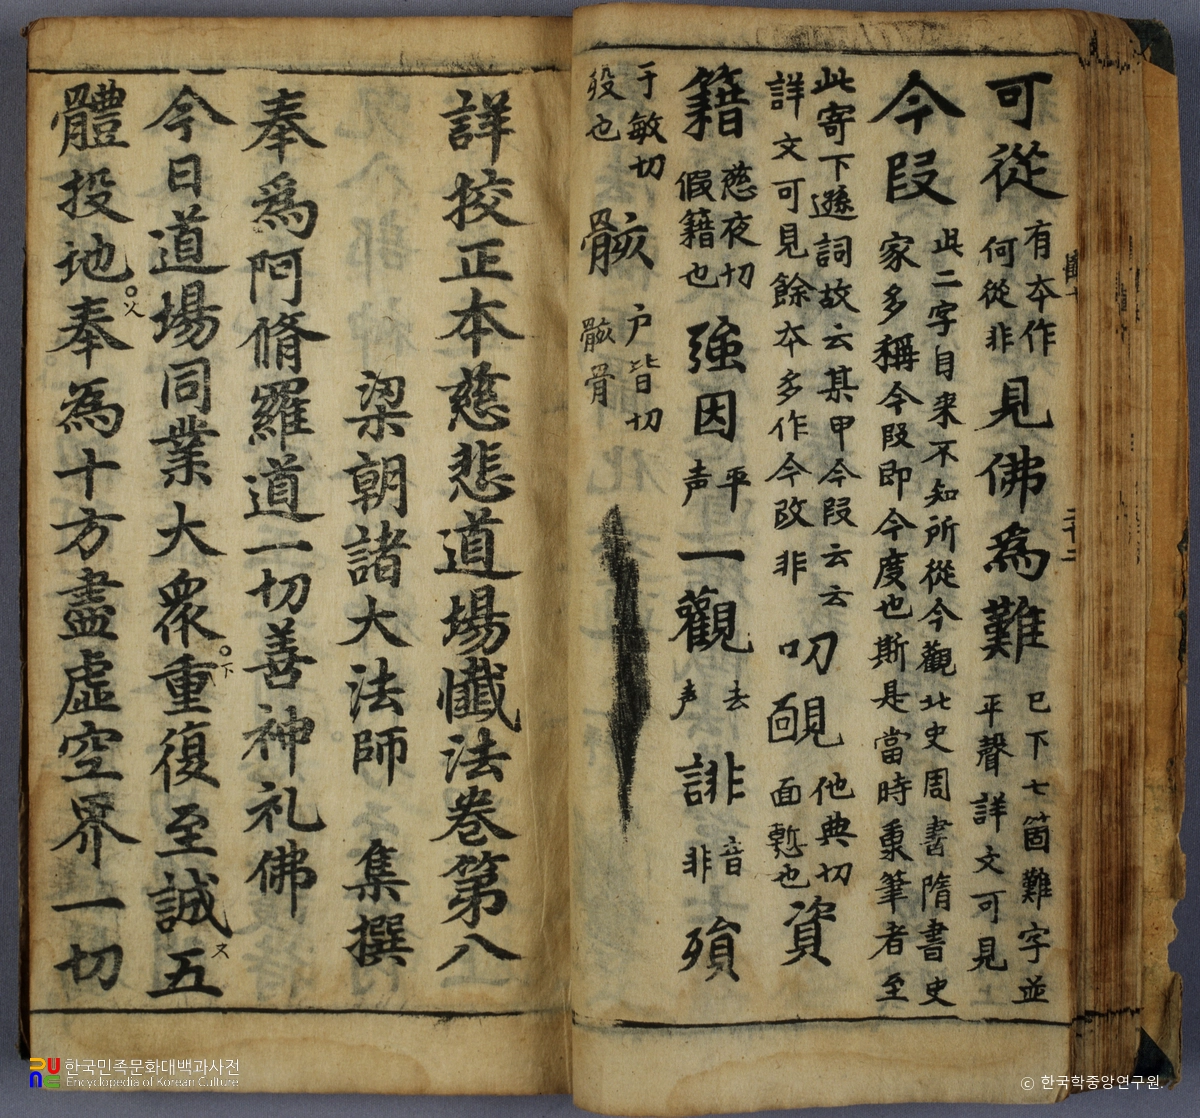 可從 有本作何從非 見佛爲難 已下七箇難字並平聲詳文可見
今叚 此二字自来不知所從今觀北史周書隋書史家多稱今叚即今度也斯是當時秉筆者至
此寄下遜詞故云某甲今叚云云詳文可見餘本多作今改非 叨 靦 他典切面慙也 資
籍 慈夜切假籍也 強因 平声 一觀 去声 誹 音非 殞
于敏切殁也 骸 户皆切骸骨
詳挍正本慈悲道場懺法卷第八
梁朝諸大法師 集撰
奉爲阿脩羅道一切善神礼佛
今日道場同業大衆重復至誠五
體投地奉為十方盡虛空界一切
한국민족문화대백과사전
Encyclopedia of Korean Culture
© 한국학중앙연구원